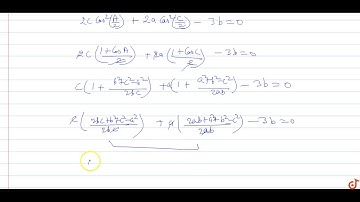 2c cos²(A/2) + 2a cos²(C/2) - 3b = 0
2c (1+cosA/2) + 2a (1+cosC/2) - 3b = 0
c(1 + b²+c²-a²/2bc) + a(1 + a²+b²-c²/2ab)
c(2bc+b²+c²-a²/2bc) + a(2ab+a²+b²-c²/2ab) - 3b = 0